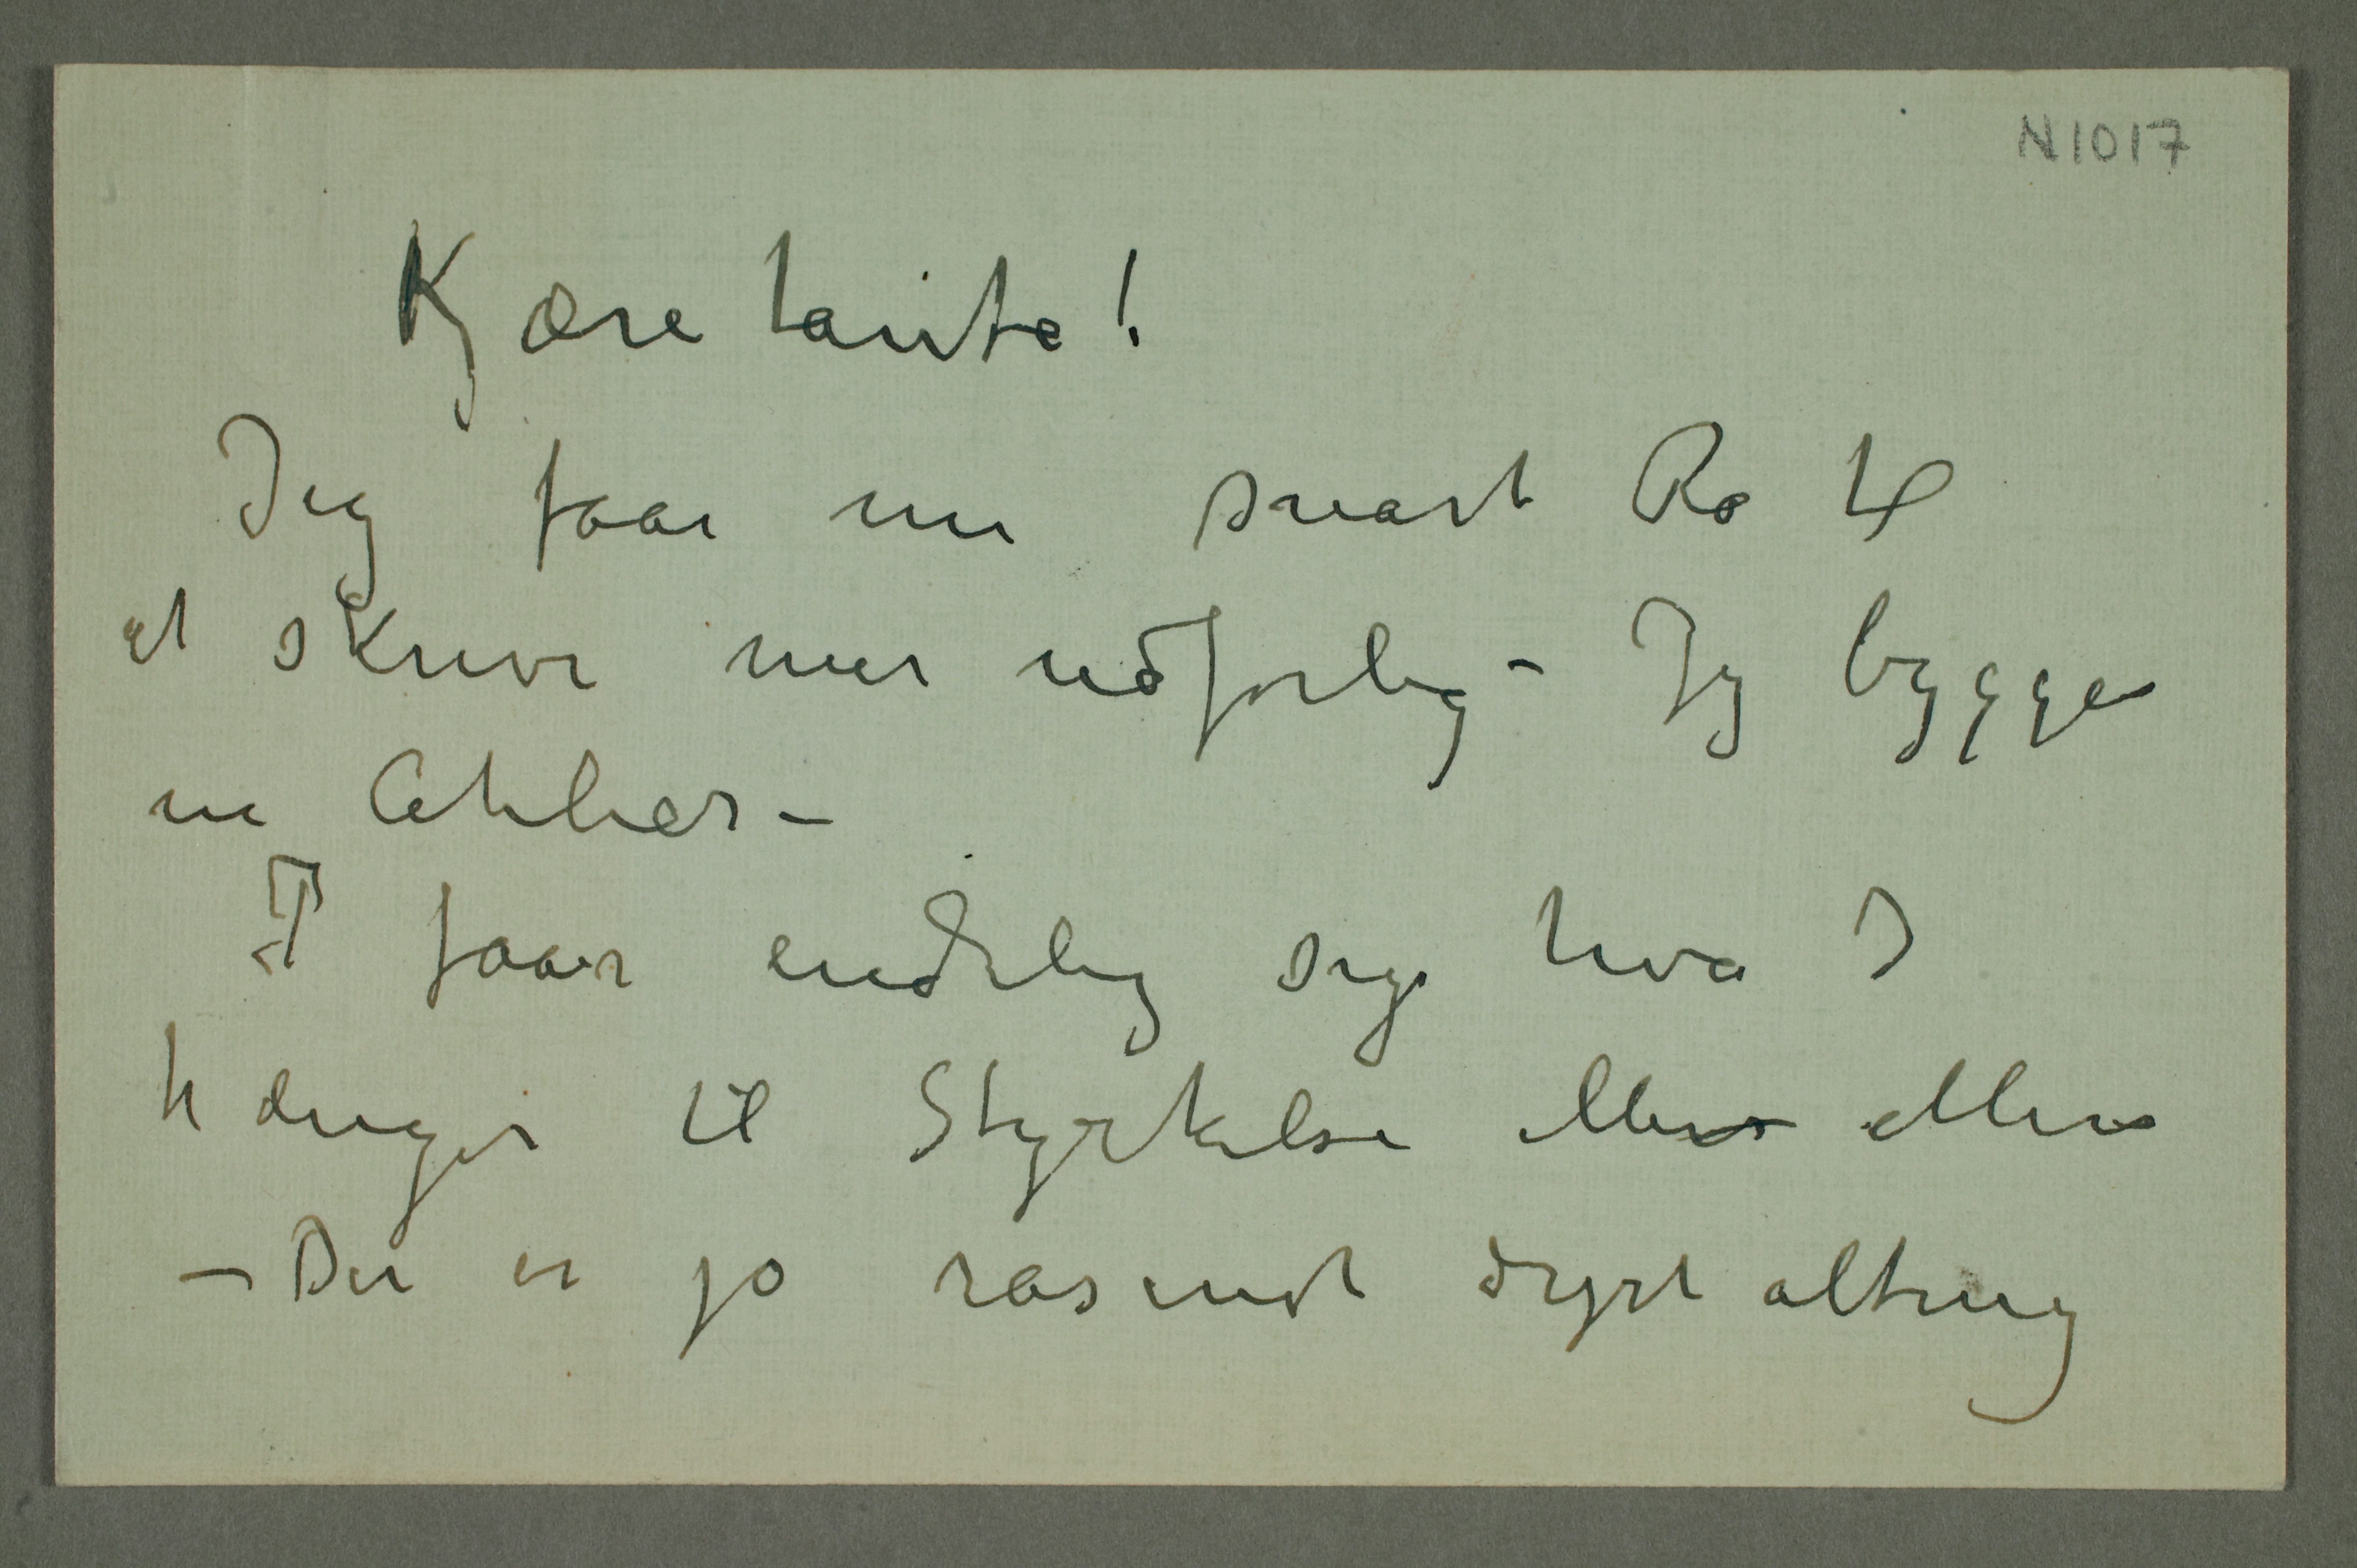 N1017
Kjære tante!
Jeg faar nu snart Ro til
at skrive mer udførlig – Jeg bygger
nu Atelier –
I faar endelig sige hva I
trænger til Styrkelse ellers ellers
– Det er jo rasende dyrt alting